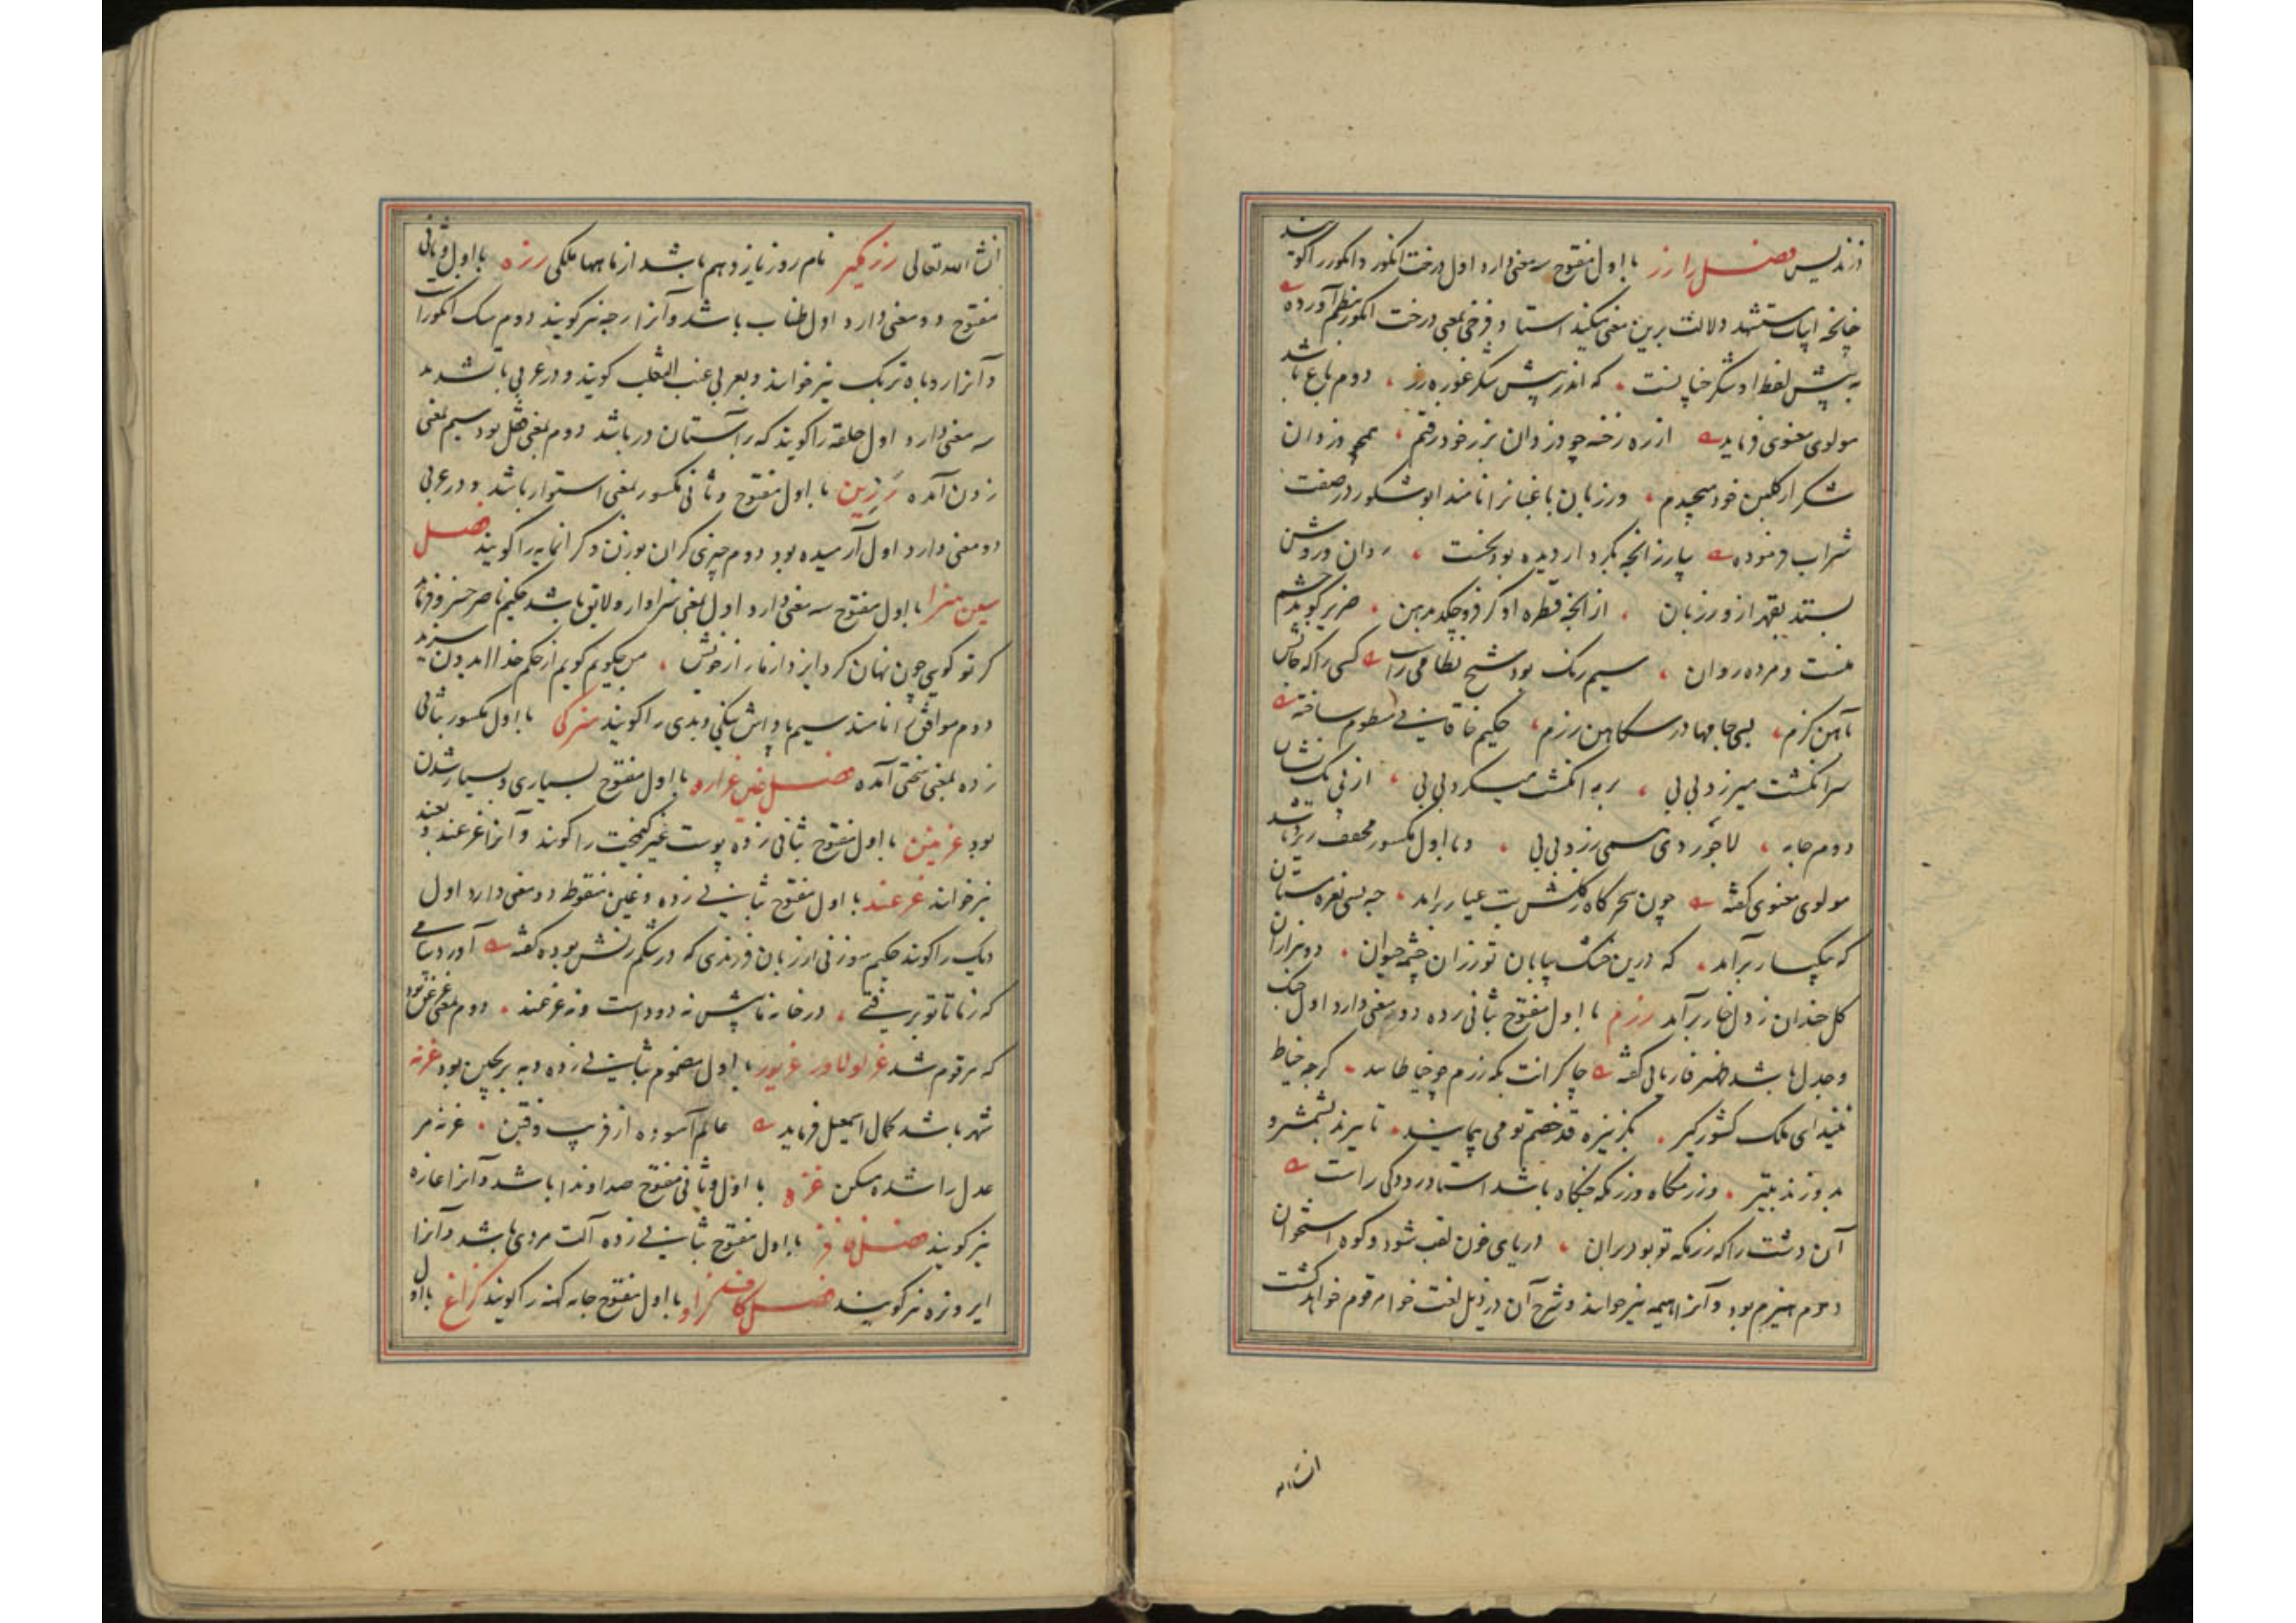 زندیس فصل را رز با اول مفتوح سه معنی دارد اول درخت انگور و انگور را گویند
چنانچه ابیات مستشهد دلالت برین معنی میکند استاد فرخی بمعنی درخت انگور نظم آورده
به پیش لفظ او شکر چنانست که اندر پیش شکر غوره رز دوم باغ باشد
مولوی معنوی فرماید از ره رخنه چو دزدان برز خود رفتم همچو دزدان
شکر از گلبن خود میچیدم ورزبان باغبانرا نامند ابوشکور در صفت
شراب فرموده بیار زانچه بکردار دیده بود نخست روان روشن
بستد بقهر از و رزبان از انچه قطره او گر فرو چکد بدهن ضریر گوید چشم
منست و مرده روان سیم رنگ بود شیخ نظامی راست کسی را که جانش
بآهن گزم بسی جامها در سکاهن رزم حکیم خاقانی منظوم ساخته
سر انگشت میرزد بی بی
دوم جامه لاجوردی سمی رزد بی بی و با اول مکسور مخفف ریز باشد
مولوی معنوی گفته چون سحرگاه ز گلشن بت عیار برآمد چه بسی نعره مستان
که بیکبار برآمد که درین خشک بیابان تو زران چشمه حیوان دو هزاران
گل خندان ز دل خار برآمد رزم با اول مفتوح بثانی زده دو معنی دارد اول جنگ
و جدل باشد ظهیر فاریابی گفته چاکرانت بگه رزم چو خیاطانند گرچه خیاط
نیند ای ملک کشورگیر بگز نیزه قد خصم تو می پیمایند تا ببرند بشمشیر و
بدوزند بتیر و رزمگاه و رزمگه جنگاه باشد استاد رودکی راست
آن دشت را که رزمگه تو بود بران دریای خون لقب شود و کوه استخوان
دوم هیزم بود و آنرا هیمه نیز خوانند و شرح آن در ذیل لغت خوا مرقوم خواهد گشت
انشاالله
انشاالله تعالی رزمگیر نام روز یازدهم باشد از ماهها ملکی رزه با اول و ثانی
مفتوح دو معنی دارد اول طناب باشد و آنرا رجه نیز گویند دوم سک انگور است
و آنرا روباه تربک نیز خوانند و بعربی عنب الثعلب گویند و در عربی با تشدید
سه معنی دارد اول حلقه را گویند که بر آستان در باشد دوم بمعنی قفل بود سیم بمعنی
زدن آمده رزین با اول مفتوح و ثانی مکسور بمعنی استوار باشد و در عربی
دو معنی دارد اول آرمیده بود دوم چیزی گران بوزن و گرانمایه را گویند فصل
سین سزا با اول مفتوح سه معنی دارد اول بمعنی سزاوار و لایق باشد حکیم ناصر خسرو فرماید
گر تو گویی چون نهان کرد ایزد از ما راز خویش من چگویم گویم از حکم خدا ایدون سزید
دوم موافق را نامند سیم پاداش نیکی و بدی را گویند سزکی با اول مکسور بثانی
زده بمعنی سختی آمده فصل غین غزاره با اول مفتوح بسیاری و بسیار شدن
بود غزمین با اول مفتوح بثانی زده پوست غیر کیمخت را گویند و آنرا غرغند
نیز خوانند غزغند با اول مفتوح بثانی زده و غین منقوط دو معنی دارد اول
دیک را گویند حکیم سوزنی از زبان فرزندی که در شکم زنش بوده گفته
در خانه نه دود است و نه غزغند دوم بمعنی غزمین بود
که مرقوم شد غزلولاور غزیور با اول مضموم بثانی زده غزنه
شهر باشد کمال اسمعیل فرماید عالم آسوده از فریب و فتن غزنه مر
عدل را شده مسکن غزه با اول و ثانی مفتوح صداوندا باشد و آنرا غازه
نیز گویند فصل فا فز با اول مفتوح بثانی زده آلت مردی باشد و آنرا
نیز گویند فصل کاف کزاو با اول مفتوح جامه کهنه را گویند کزاغ با اول